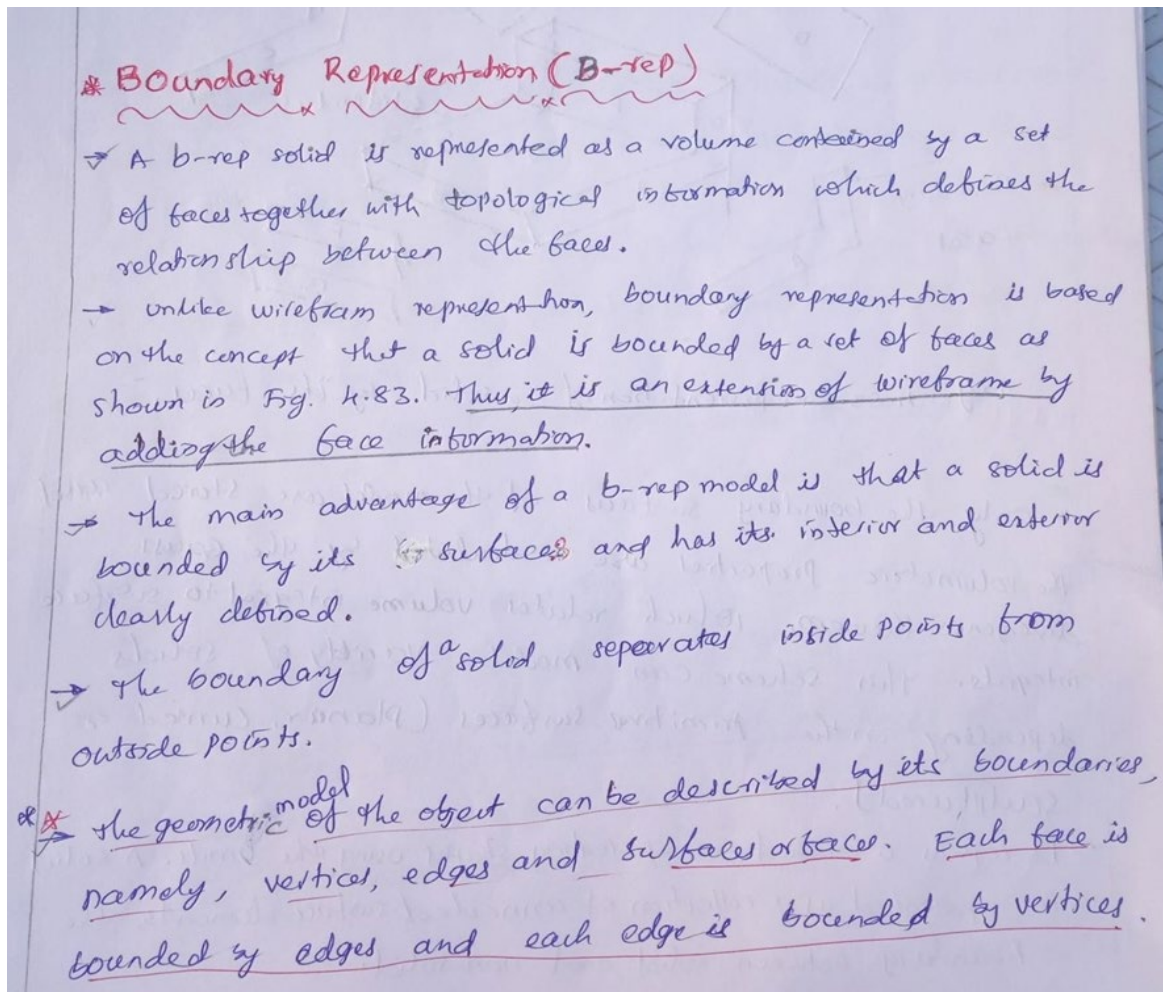 * Boundary Representation (B-rep)
→ A b-rep solid is represented as a volume contained by a set
of faces together with topological information which defines the
relationship between the faces.
→ unlike wirefram represent hon, boundary representation is based
on the concept that a solid is bounded by a set of faces as
shown in Fig. 4.83. Thus, it is an extension of wireframe by
adding the face information.
→ the main advantage of a b-rep model is that a solid is
bounded by its surfaces and has its interior and exterior
clearly defined.
→ the boundary of a solid seperates inside points from
outside points.
** → the geometric model of the object can be described by its boundaries,
namely, vertices, edges and surfaces or faces. Each face is
bounded by edges and each edge is bounded by vertices.